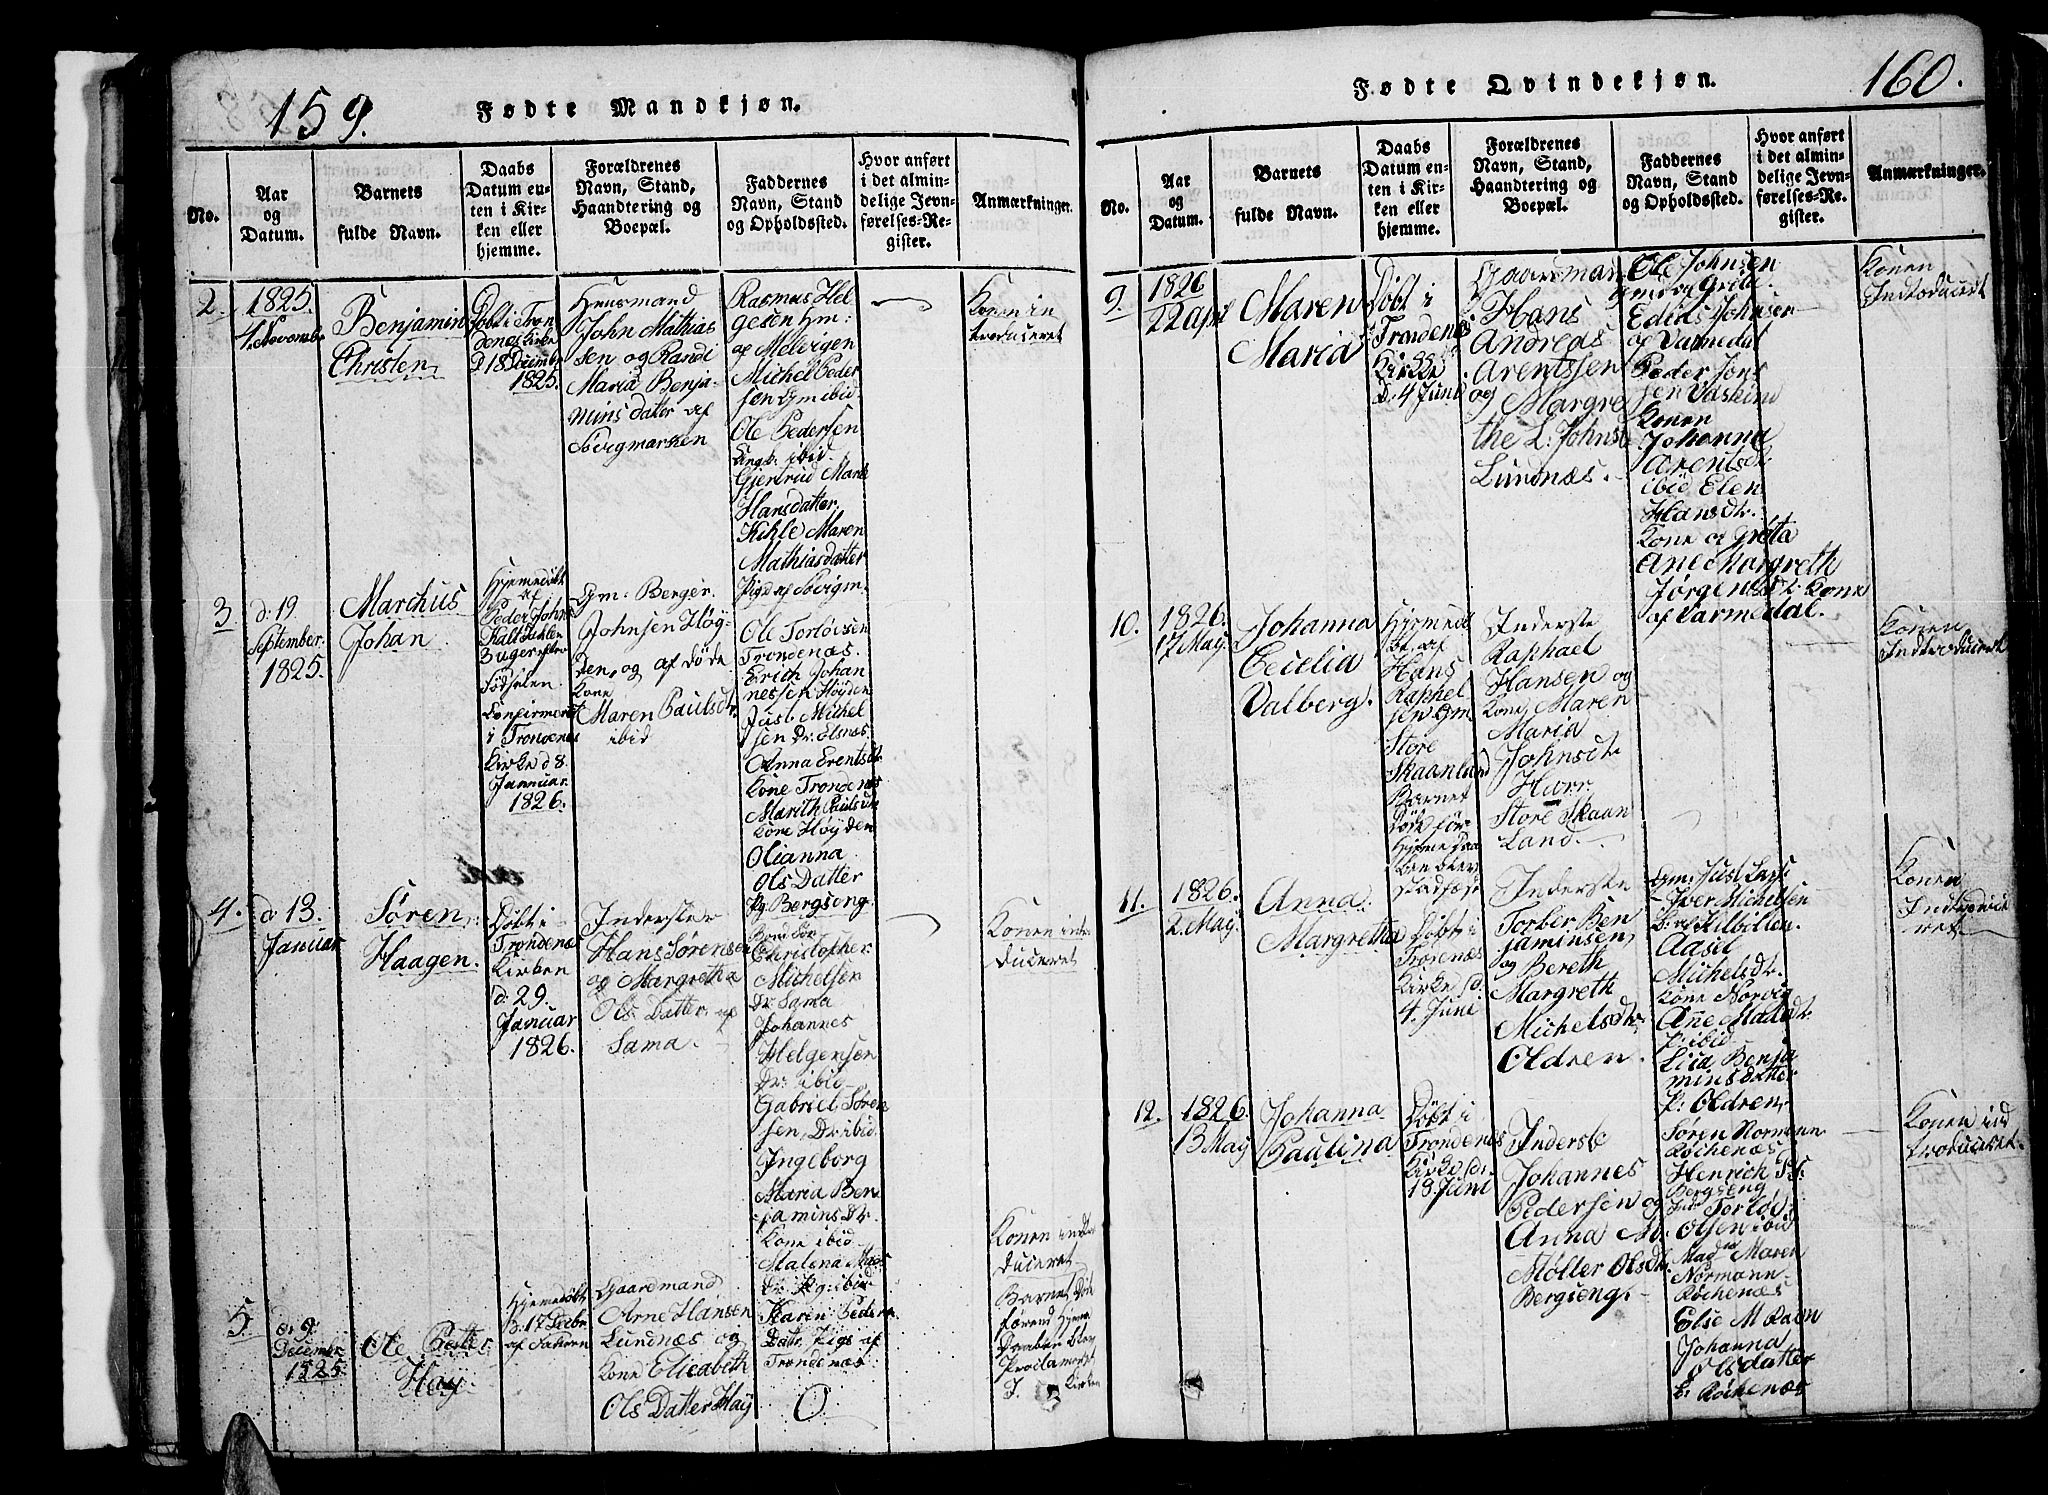 159.
Fødte Mandkjøn.
No.
Aar
og
Datum.
Barnets
fulde Navn.
Daabs
Datum en-
ten i Kir-
ken eller
hjemme.
Forældrenes
Navn, Stand,
Haandtering og
Boepæl.
Faddernes
Navn, Stand
og Opholdssted.
Hvor anført
i det almin-
delige Jevn-
førelses-Re-
gister.
Anmærkninger.
2.
1825.
4 Novembr
Benjamin
Christen
Døbt i Tron
denes Kirke
d 18 Decembr
1825.
Huusmand
John Mathias
sen og Randi
Maria Benja-
mins datter af
Sørvigmarken
Rasmus Hel
gesen Gm:
af Melvigen
Michel Peder
sen Gm ibid
Ole Pedersen
Ungk. ibid.
Gjertrud Marie
Hansdatter
Kihle Maren
Mathiasdatter
Pige af Sørvigm.
Konen in
troduceret
3
d: 19.
September.
1825.
Marchus
Johan
Hjemedøbt
af
Peder Johns
Kaltsuhlen
3 uger efter
Fødselen
Confirmeret
i Trondenes
Kirke d 8.
Januar.
1826.
Gm: Berger.
Johnsen Høy-
den, og af døde
Kone
Maren Paulsdr.
ibid
Ole Torløvsen
Trondenæs.
Erich Johan
nessen Høyden
Just Michel
sen Dr. Elsnæs.
Anna Erentsdr.
Kone Trondenæs
Marith Paulsdr
Kone Høyden
Olianna
Ols Datter
Pg. Bergseng.
4.
d 13.
Januar
Søren
Haagen.
Døbt i
Trondenæs
Kirken
d: 29.
Januar
1826.
Inderster
Hans Sørensen
og Margretha
Ols Datter af
Sama.
Christopher
Michelsen
Dr. Sama
Johannes
Helgensen
Dr: ibid
Gabriel Søren
sen, Dr. ibid
Ingeborg
Maria Ben
jamins Dr.
Kone ibid
Malena Mads
Dr. Pg: ibid
Karen Peders
Dattr. Pige af
Trondenæs
Konen intro
duceret
5.
d. 9.
Decembr.
1825.
Ole Petter
Hay
Hjemedøbt
d. 17 Decbr
Gaardmand
Arne Hansen
Lundnæs og
Kone Elisabeth
Ols Datter Hay
O
Konen intro
duceret
Barnet Død
førend Hjeme
Daaben blev
Proclameret
I Kirken
160.
Fødte Qvindekjøn.
No.
Aar
og
Datum.
Barnets
fulde Navn.
Daabs
Datum en-
ten i Kir-
ken eller
hjemme.
Forældrenes
Navn, Stand,
Haandtering og
Boepæl.
Faddernes
Navn, Stand
og Opholdssted.
Hvor anført
i det almin-
delige Jevn-
førelses-Re-
gister.
Anmærkninger.
9.
1826
22 apr
Maren
Maria
Døbt i
Trondenæs
Kirke
d. 4 Juni
Gaardsman
Hans
Andreas
Arentssen
og Margre
the L. Johnsd
Lundnæs.
Ole Johnsen
Gmd og Greta.
Edias Johnsen
af Varmedal
Peder Jons
sen Vaskind
Konen
Johanna
Arentsdr
ibid Elen
Hansdr:
Kone og Greta
Ane Margreth
Jørgensdr: Kone
af Varmedal.
Konen
Indtroduceret
10.
1826.
17 May.
Johanna
Cecelia
Valberg.
Hjemedø
bt, af
Hans
Raphel
sen Gm.
Store
Skaanland
Barnet
Død før
Hjemedaa
ben blev
stadfæst
Inderste
Raphael
Hansen og
Kone, Maren
Maria
Johnsdr
Harr.
Store Skaan
Land.
Konen
Indtroduceret
11.
1826.
2. May.
Anna
Margretha
Døbt i
Tronenæs
Kirke d.
4. Juni
Inderste
Torber Ben
jaminsen,
og Bereth
Margreth
Michelsdr.
Oldren.
Gm: Just Lars:
Iver Michelsen
Aasel
Michelsdr.
Kone Norvig
Ane Madsdr.
P. ibid
Lisa Benja
minsdatter
P: Oldren
Konen
Indtroduce
ret
12.
1826.
13 May
Johanna
Paulina
Døbt i
Trondenæs
Kirke d.
18 Juni
Inderste
Johannes
Pedersen og
Anna M.
Møller Olsdr.
Bergseng.
Søren Normann
Røchenæs
Henrich
Bergseng
Torlø
Olsen ibid
Mad Maren
Normann
Røchenæs
Else M Ravn
Johanna
Olsdatter
Røchenæs
Konen id
troduceret.